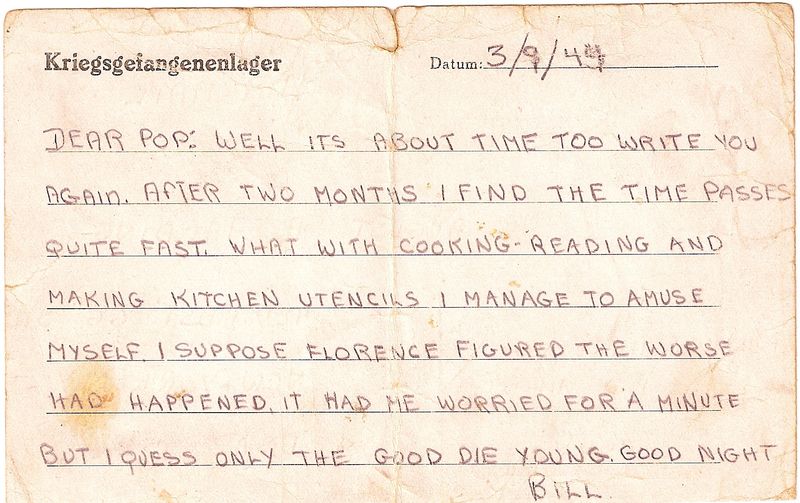 Kriegsgefangenenlager Datum: 3/9/44
DEAR POP: WELL ITS ABOUT TIME TOO WRITE YOU
AGAIN. AFTER TWO MONTHS I FIND THE TIME PASSES
QUITE FAST. WHAT WITH COOKING-READING AND
MAKING KITCHEN UTENCILS I MANAGE TO AMUSE
MYSELF. I SUPPOSE FLORENCE FIGURED THE WORSE
HAD HAPPENED. IT HAD ME WORRIED FOR A MINUTE
BUT I QUESS ONLY THE GOOD DIE YOUNG. GOOD NIGHT
BILL.